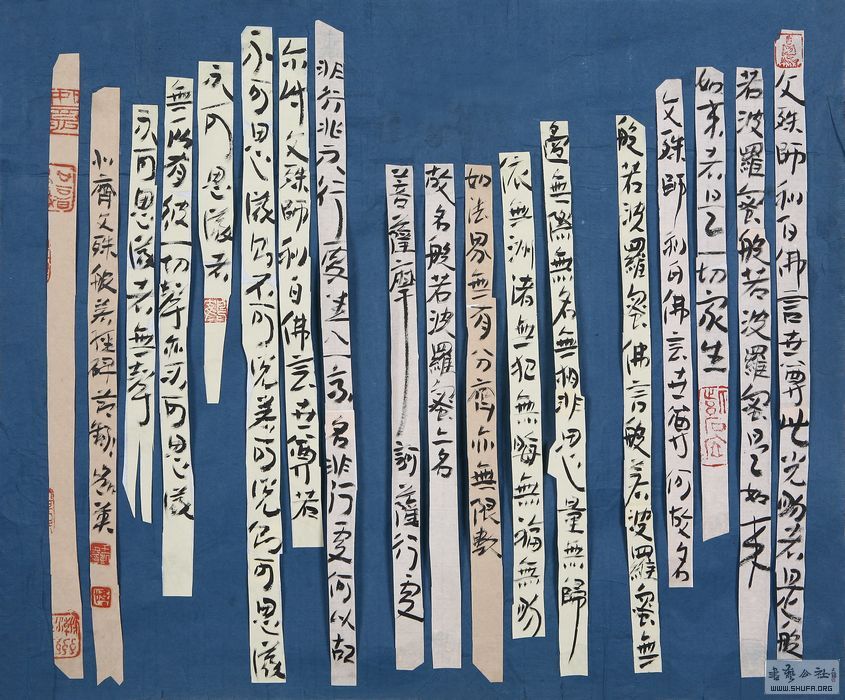 文殊師利白佛言世尊此光明者是般
若波羅蜜般若波羅蜜是如來
如來者是一切眾生
文殊師利白佛言世尊何故名
般若波羅蜜佛言般若波羅蜜無
邊無際無名無相非思量無歸
依無洲渚無犯無晦無福無明
如法界無有分齊亦無限數
故名般若波羅蜜亦名
菩薩摩訶薩行處
非行非不行處悉入一乘名非行處何以故
尔时文殊師利白佛言世尊若
不可思議不可說可說可思議
不可思議者
無以有彼一切聲亦不可思議
不可思議者無聲
北齊文殊般若經碑
書藝公社
WWW.SHUFA.ORG